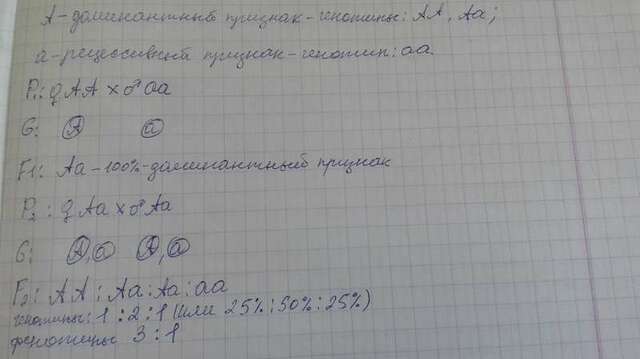 А-доминантный признак-генотипы: АА, Аа;
а-рецессивный признак-генотип: аа.
P1: ♀АА × ♂аа
G: А а
F1: Аа-100%-доминантный признак
P2: ♀Аа × ♂Аа
G: А, а А, а
F2: АА : Аа : Аа : аа
генотипы: 1 : 2 : 1 (или 25% : 50% : 25%)
фенотипы 3 : 1